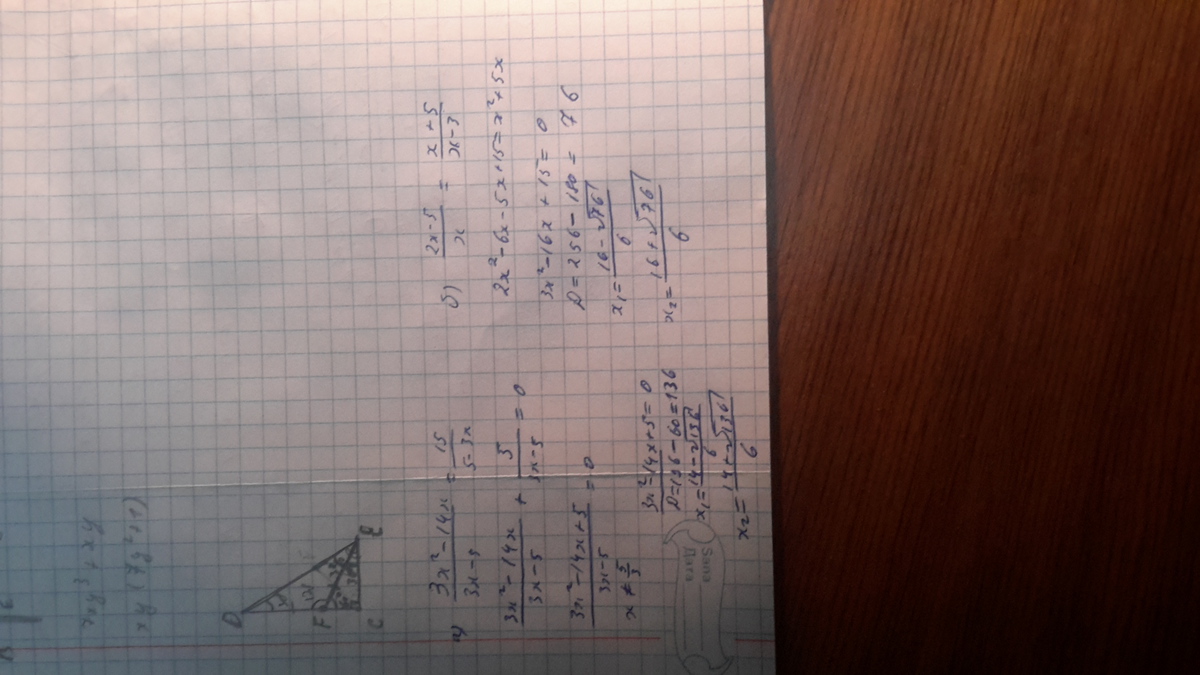 xy(7y²+1)
D
F
C
E
a) (3x²-14x)/(3x-5) = 15/(5-3x)
(3x²-14x)/(3x-5) + 5/(3x-5) = 0
(3x²-14x+5)/(3x-5) = 0
x ≠ 5/3
3x²-14x+5=0
D=196-60=136
x₁=(14-√136)/6
x₂=(14+√136)/6
б) (2x-5)/x = (x+5)/(x-3)
2x²-6x-5x+15=x²+5x
3x²-16x+15=0
D=256-180=76
x₁=(16-√76)/6
x₂=(16+√76)/6
Дата